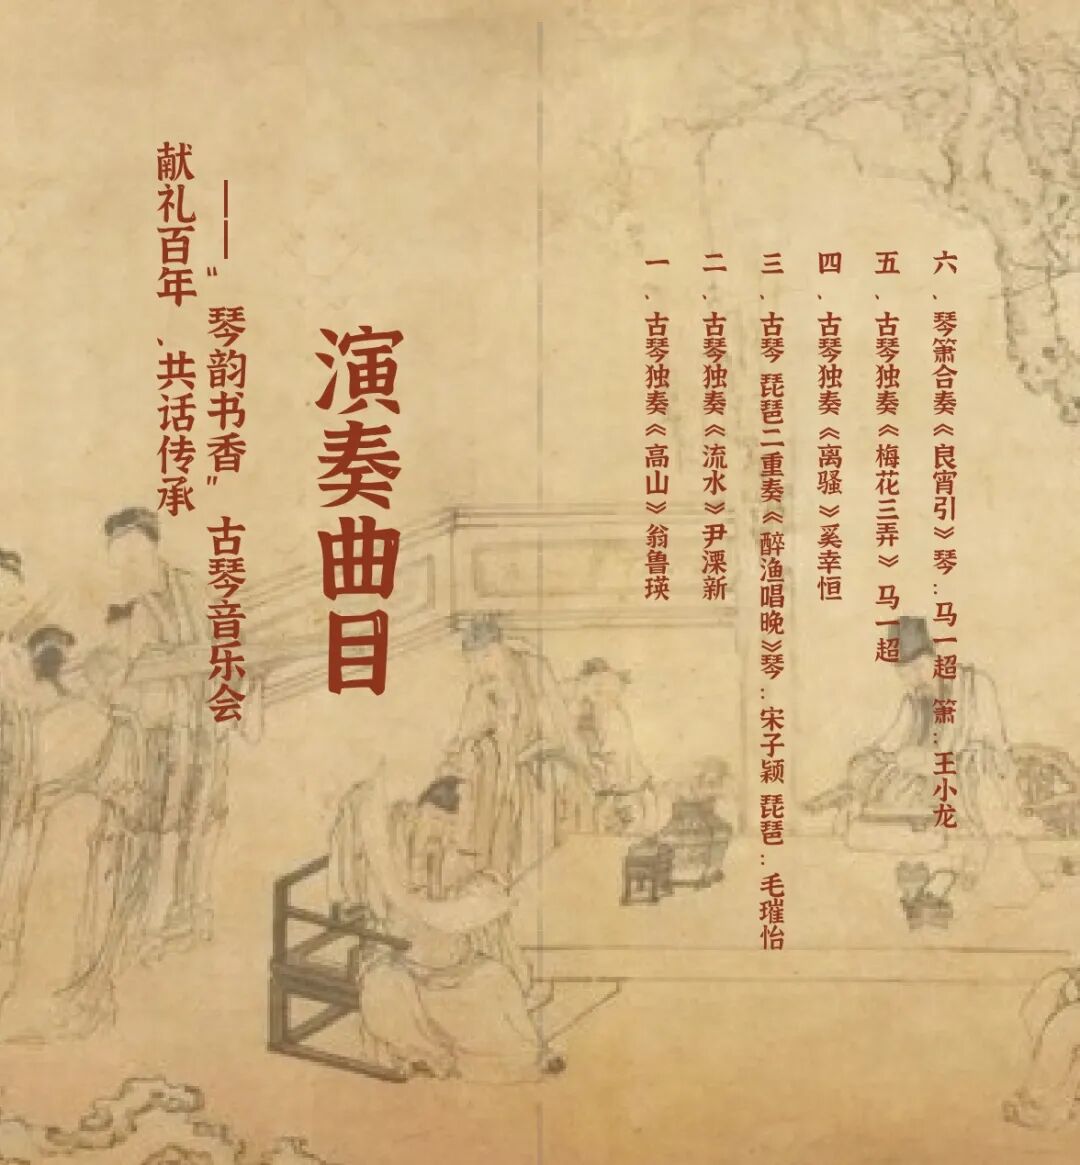 献礼百年、共话传承
——“琴韵书香”古琴音乐会
演奏曲目
一、古琴独奏《高山》翁鲁瑛
二、古琴独奏《流水》尹溧新
三、古琴 琵琶二重奏《醉渔唱晚》琴：宋子颖 琵琶：毛璀怡
四、古琴独奏《离骚》奚幸恒
五、古琴独奏《梅花三弄》 马一超
六、琴箫合奏《良宵引》琴：马一超 箫：王小龙